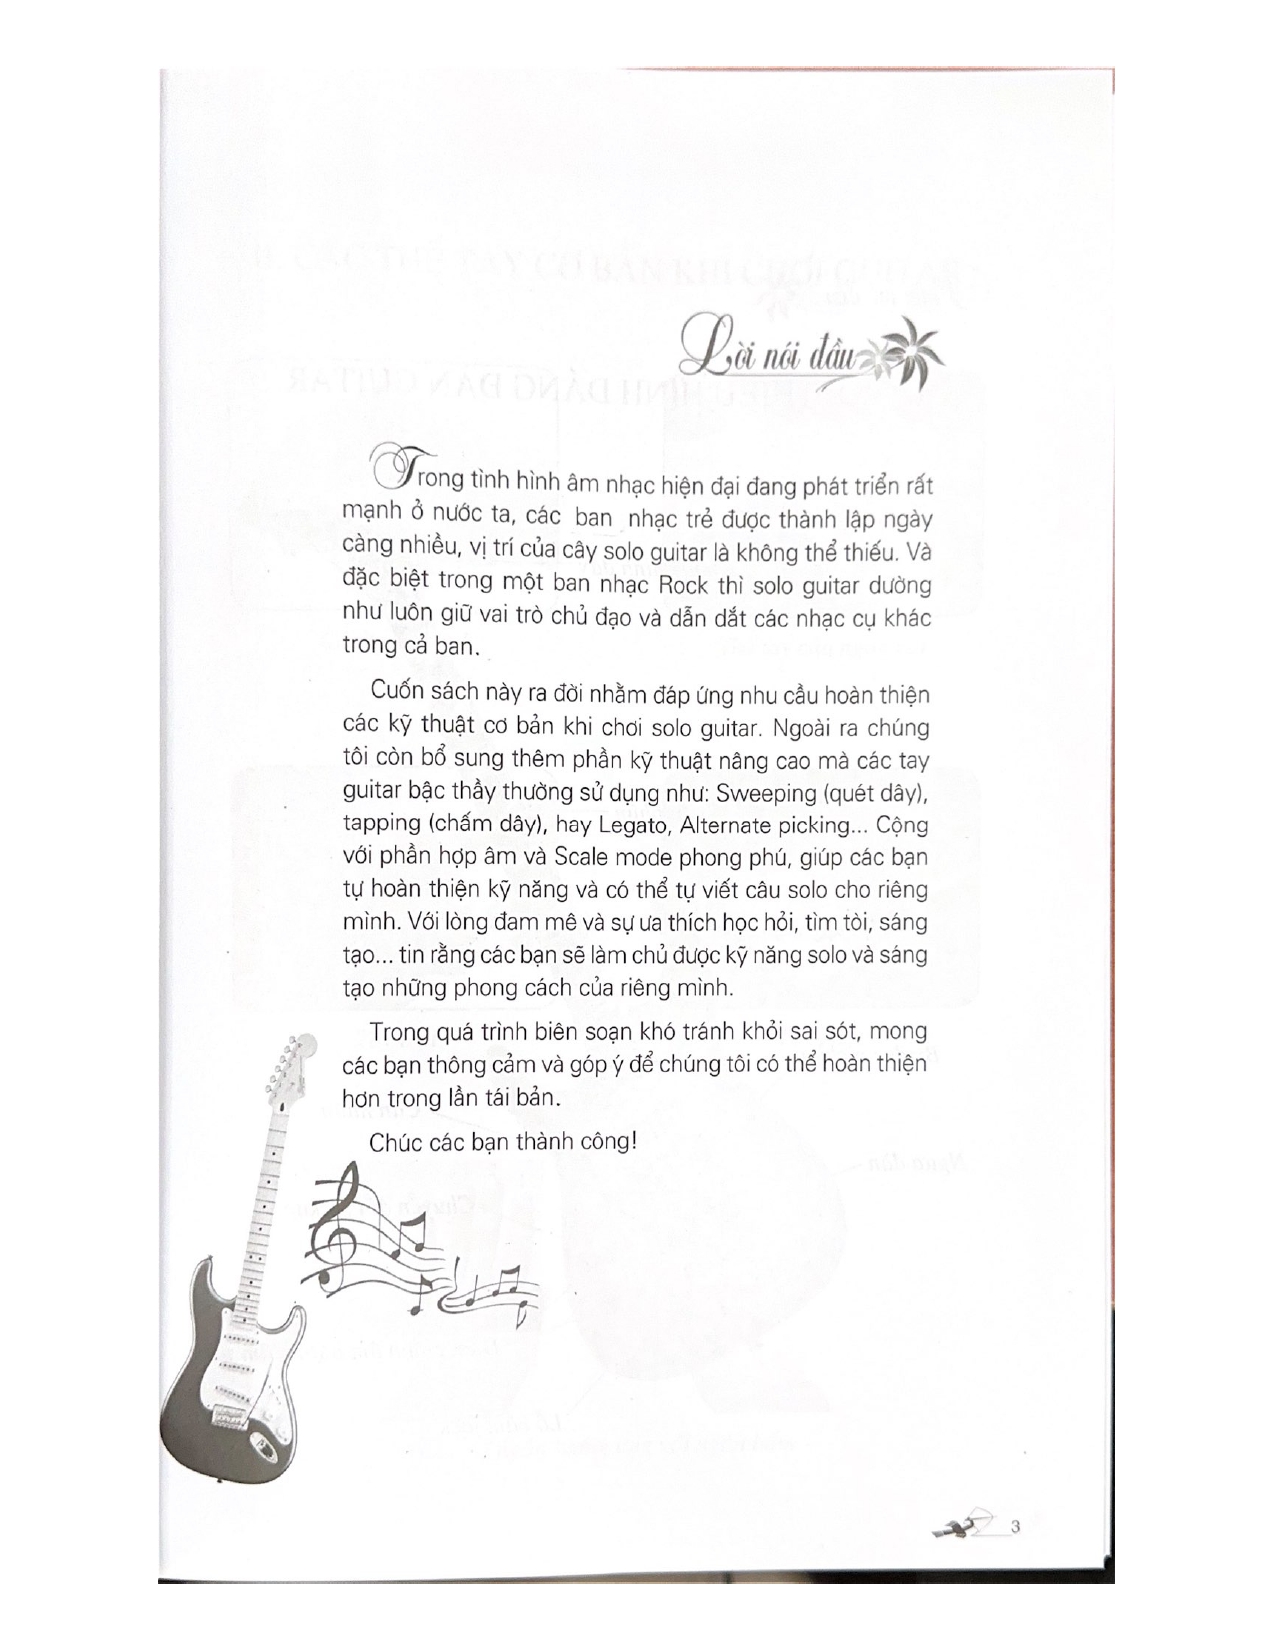 Lời nói đầu
Trong tình hình âm nhạc hiện đại đang phát triển rất
mạnh ở nước ta, các ban nhạc trẻ được thành lập ngày
càng nhiều, vị trí của cây solo guitar là không thể thiếu. Và
đặc biệt trong một ban nhạc Rock thì solo guitar dường
như luôn giữ vai trò chủ đạo và dẫn dắt các nhạc cụ khác
trong cả ban.
Cuốn sách này ra đời nhằm đáp ứng nhu cầu hoàn thiện
các kỹ thuật cơ bản khi chơi solo guitar. Ngoài ra chúng
tôi còn bổ sung thêm phần kỹ thuật nâng cao mà các tay
guitar bậc thầy thường sử dụng như: Sweeping (quét dây),
tapping (chấm dây), hay Legato, Alternate picking... Cộng
với phần hợp âm và Scale mode phong phú, giúp các bạn
tự hoàn thiện kỹ năng và có thể tự viết câu solo cho riêng
mình. Với lòng đam mê và sự ưa thích học hỏi, tìm tòi, sáng
tạo... tin rằng các bạn sẽ làm chủ được kỹ năng solo và sáng
tạo những phong cách của riêng mình.
Trong quá trình biên soạn khó tránh khỏi sai sót, mong
các bạn thông cảm và góp ý để chúng tôi có thể hoàn thiện
hơn trong lần tái bản.
Chúc các bạn thành công!
3